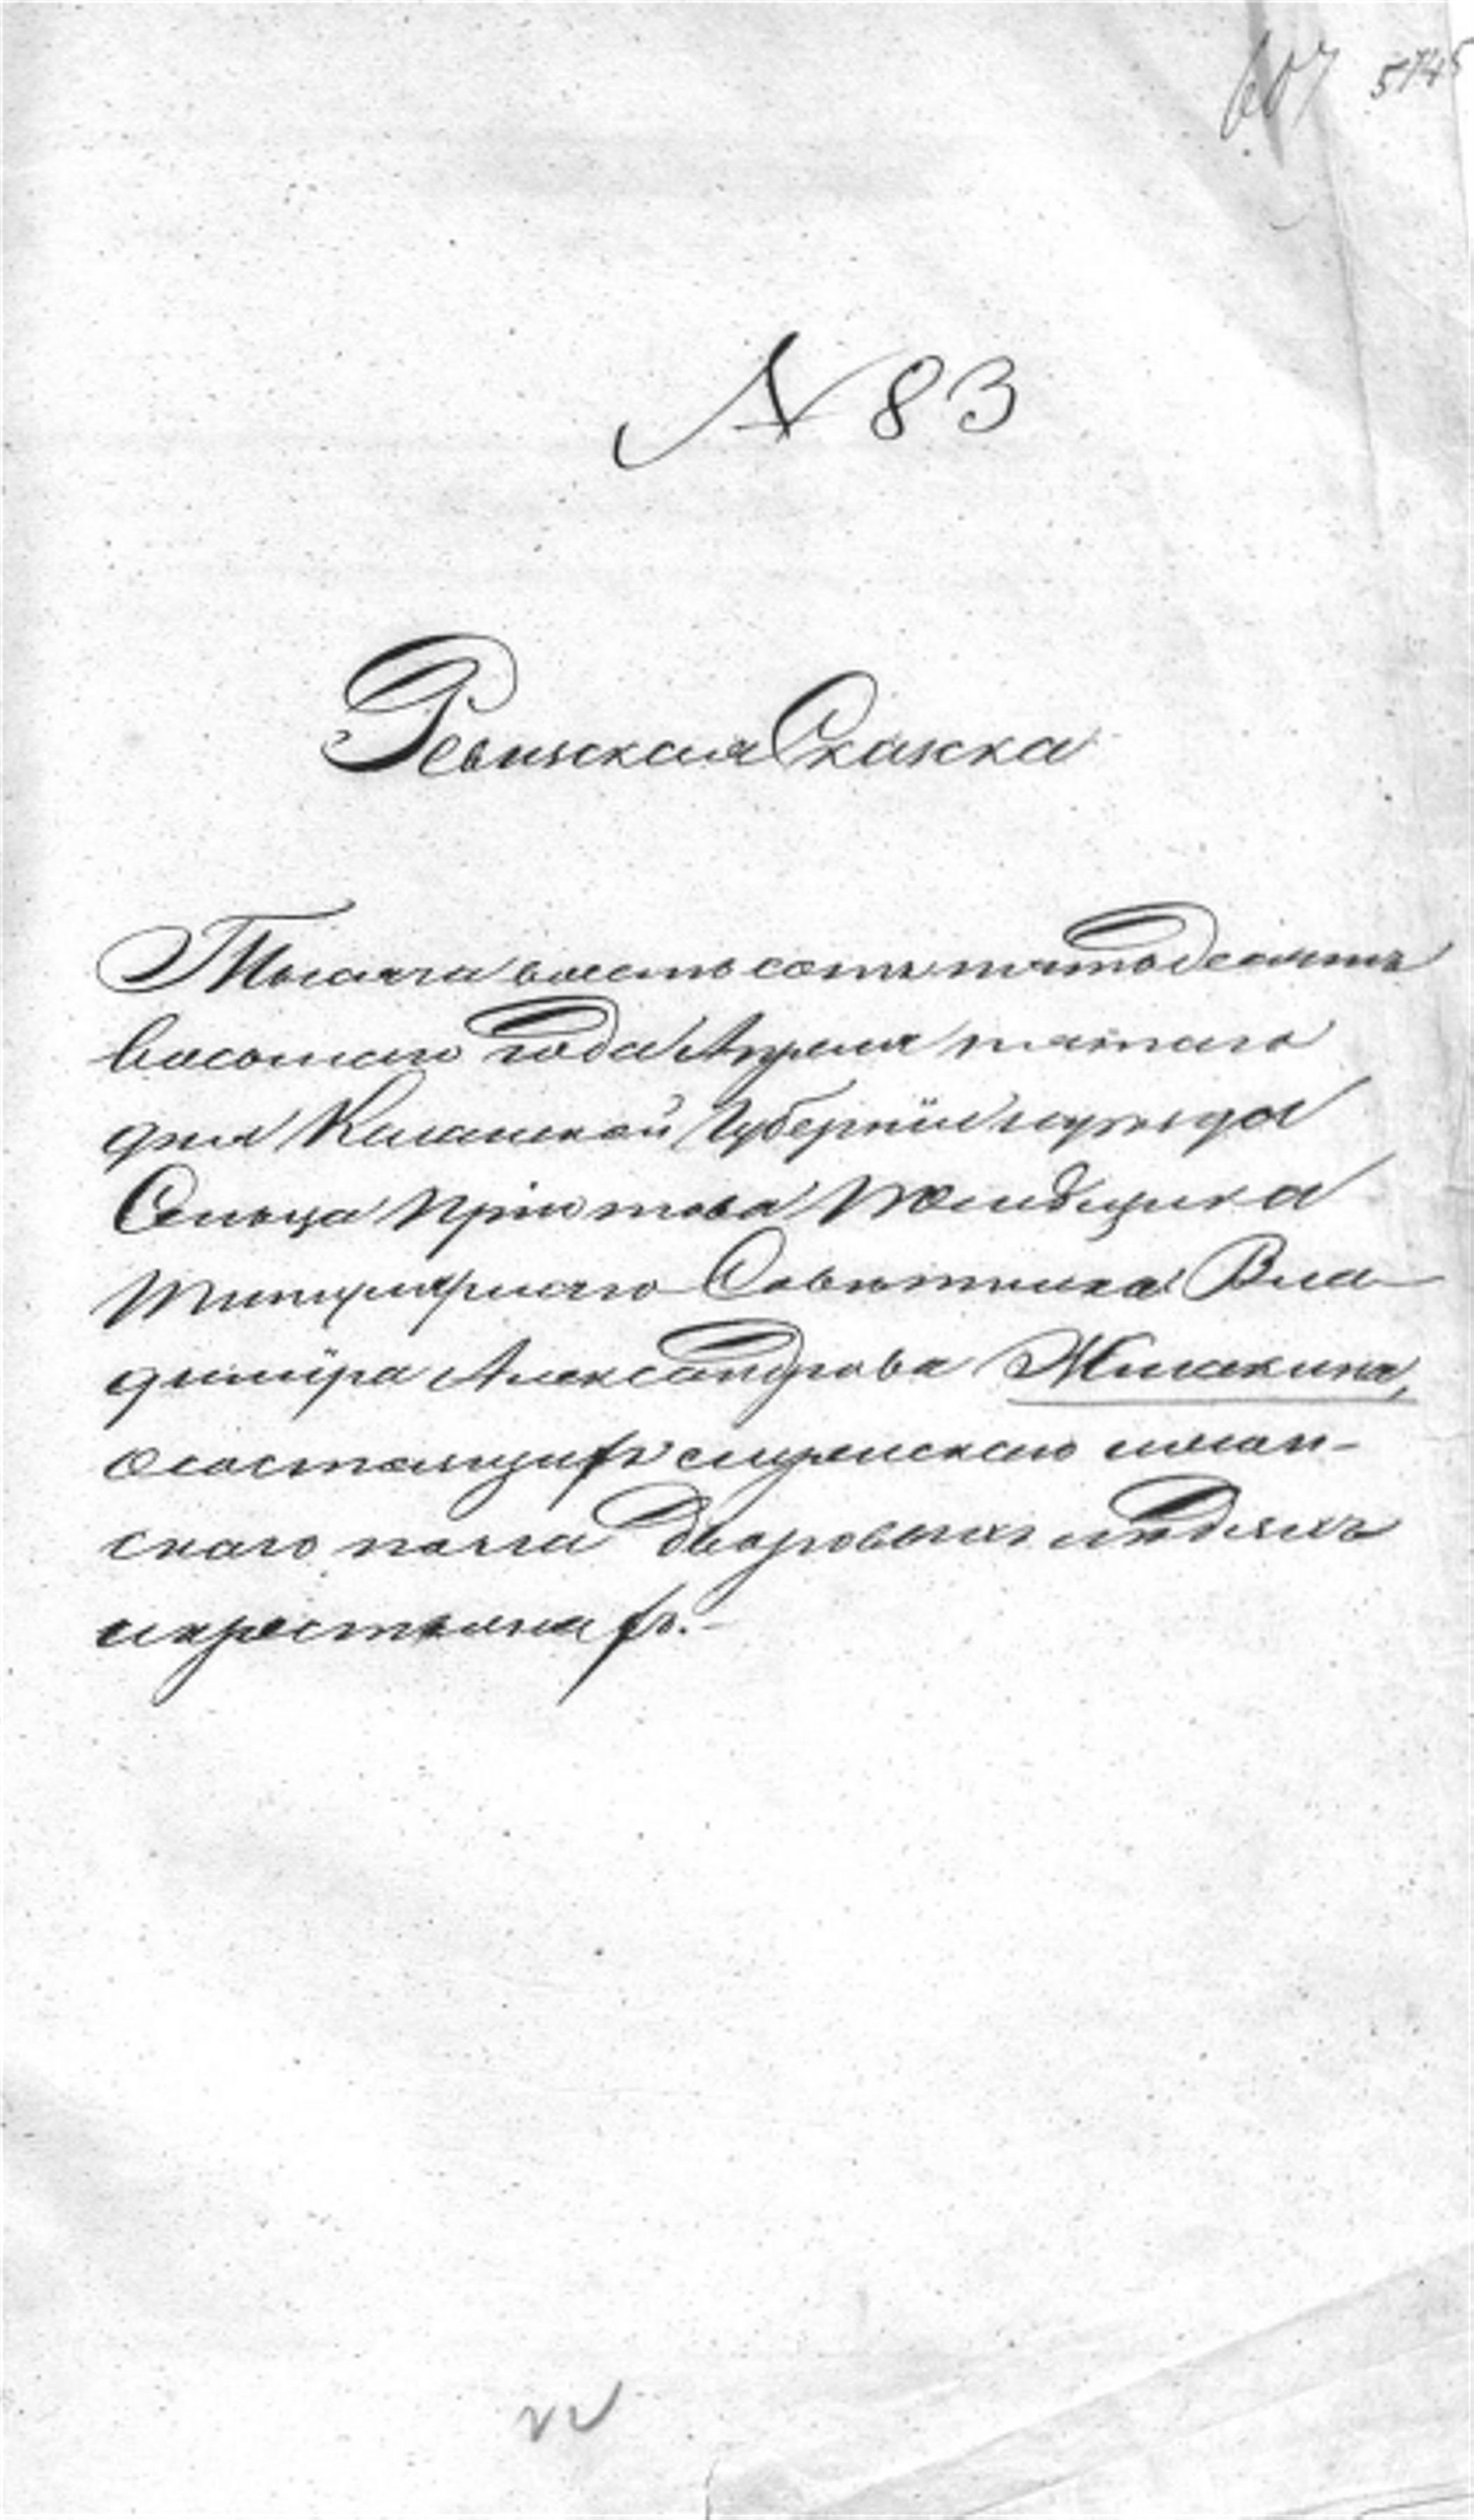 607 5745
№ 83
Ревизская Сказка
Тысяча восемь сотъ пятьдесятъ
восьмаго года Апреля пятаго
дня Казанской Губерніи и уѣзда
Сельца Пріютова Помѣщика
Титулярнаго Совѣтника Вла-
диміра Александрова
о состоящихъ мужеска и женска-
скаго пола дворовыхъ людяхъ
и крестьянахъ.